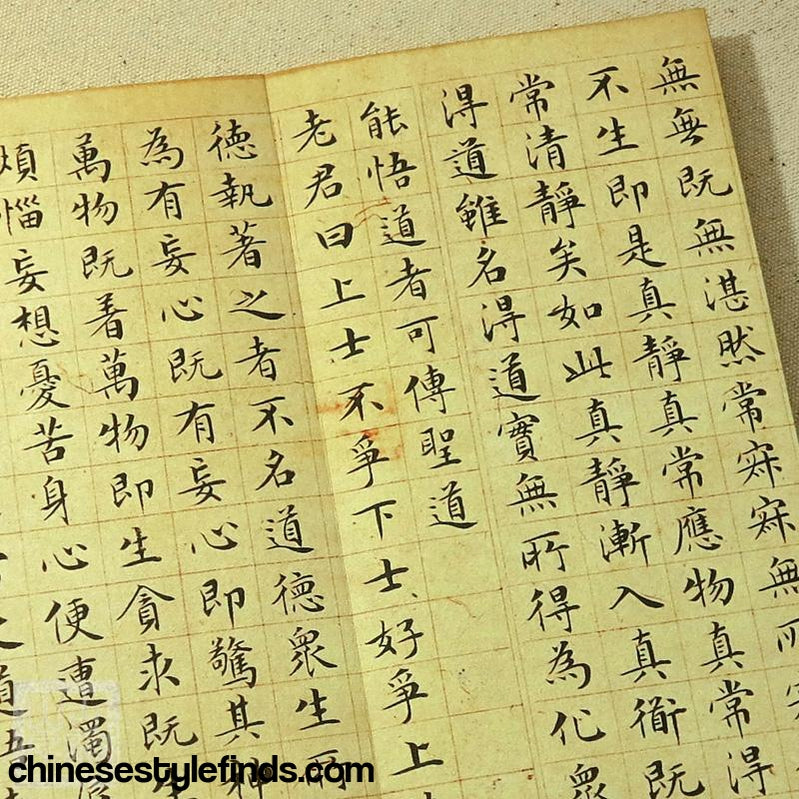 無無既無湛然常寂寂無所
不生即是真靜真常應物真常得
常清靜矣如此真靜漸入真衜既
得道雖名得道實無所得為化眾
能悟道者可傳聖道
老君曰上士不爭下士好爭上
德執著之者不名道德眾生所
為有妄心既有妄心即驚其神
萬物既着萬物即生貪求既
煩惱妄想憂苦身心便遭濁
道
chinesestylefinds.com